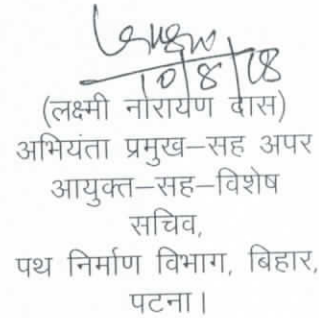 10/8/08
(लक्ष्मी नारायण दास)
अभियंता प्रमुख–सह अपर
आयुक्त–सह–विशेष
सचिव,
पथ निर्माण विभाग, बिहार,
पटना।